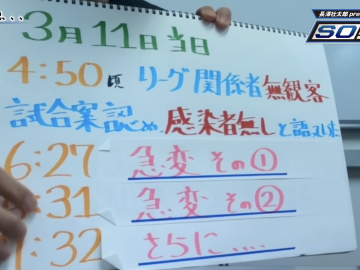 長澤壮太郎 pre
SO
3月11日当日
4:50頃 リーグ関係者無観客
試合案認め、感染者無しと語る
6:27 急変 その①
:31 急変 その②
:32 さらに....